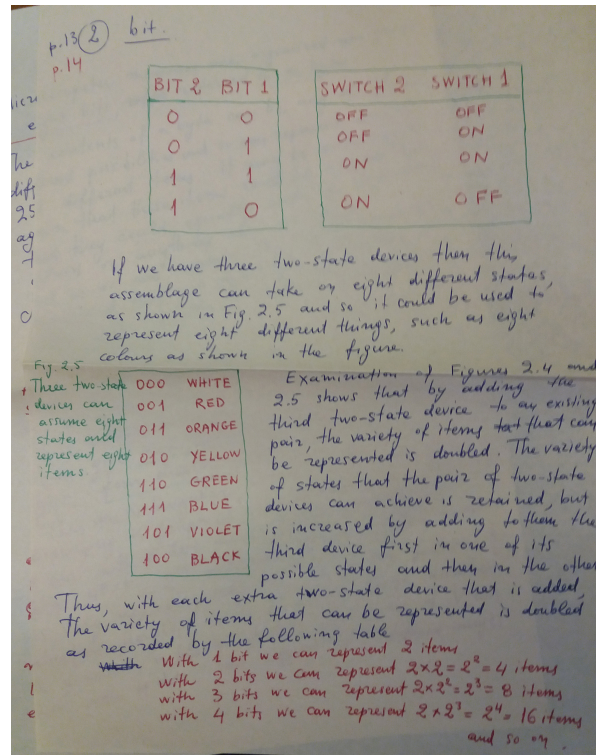 p.13 2 bit.
p.14
BIT 2 BIT 1
0 0
0 1
1 1
1 0
SWITCH 2 SWITCH 1
OFF OFF
OFF ON
ON ON
ON OFF
If we have three two-state devices then this
assemblage can take on eight different states,
as shown in Fig. 2.5 and so it could be used to
represent eight different things, such as eight
colours as shown in the figure.
Fig. 2.5
Three two-state
devices can
assume eight
states and
represent eight
items.
000 WHITE
001 RED
011 ORANGE
010 YELLOW
110 GREEN
111 BLUE
101 VIOLET
100 BLACK
Examination of Figures 2.4 and
2.5 shows that by adding the
third two-state device to an existing
pair, the variety of items that can
be represented is doubled. The variety
of states that the pair of two-state
devices can achieve is retained, but
is increased by adding to them the
third device first in one of its
possible states and then in the other
Thus, with each extra two-state device that is added,
The variety of items that can be represented is doubled
as recorded by the following table
With 1 bit we can represent 2 items
with 2 bits we can represent 2×2=2²=4 items
with 3 bits we can represent 2×2²=2³=8 items
with 4 bits we can represent 2×2³=2⁴=16 items
and so on.